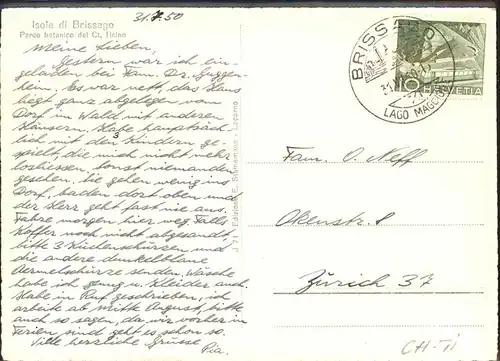 31.7.50
Isole di Brissago
Parco botanico del Ct. Ticino
Meine Lieben,
Gestern war ich ein-
geladen bei Fam. Dr. Guggen-
heim, Es war nett, das Haus
liegt ganz abgelegen vom
Dorf im Wald mit anderen
Häusern, Habe hauptsäch
lich mit den 3 Kindern ge-
spielt, die mich nicht mehr
losliessen, sonst niemanden
gesehen, sie gehen wenig ins
Dorf, baden dort oben und
der Herr geht fast nie aus.
Fahre morgen hier weg Falls
Koffer noch nicht abgesandt,
bitte 3 Küchenschürzen und
die andere dunkelblaue
Aermelschürze senden, Wäsche
habe ich genug u. Kleider auch.
Habe in Ruf geschrieben, ich
arbeite ab mitte August, bitte
auch so sagen, da wir vorher in
Ferien sind geht es schon so.
Viele herzliche Grüsse
Pia.
BRISSAGO
LAGO MAGGIORE
10 HELVETIA
Fam. O. Neff
Okenstr. 8
Zürich 37
CH-TI